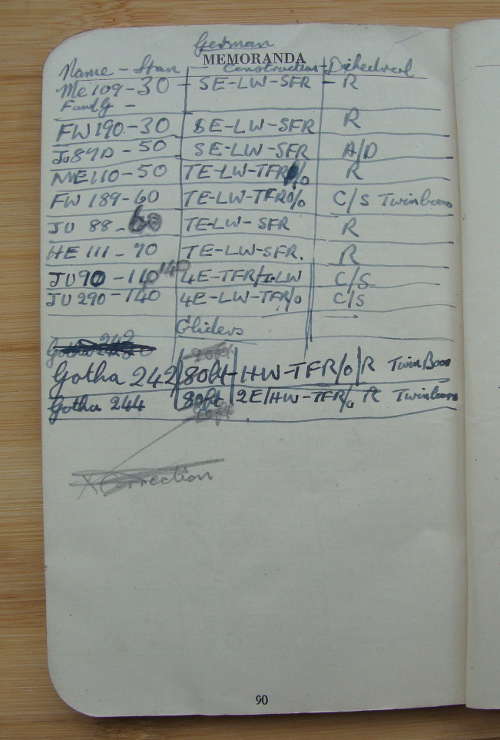 German
MEMORANDA
Name - Span Construction - Dihedral
Me 109 - 30 - SE-LW-SFR - R
F and G -
FW 190 - 30 SE-LW-SFR R
JU 87D - 50 SE-LW-SFR A/D
ME 110 - 50 TE-LW-TFR/o R
FW 189 - 60 TE-LW-TFR/o C/S Twinboom
JU 88 - 60 TE-LW-SFR R
HE 111 - 70 TE-LW-SFR. R
JU 90 - 110 140 4E-TFR/LW C/S
JU 290 - 140 4E-LW-TFR/o C/S
Gliders
Gotha 242
Gotha 242 80ft - HW-TFR/o R Twin Boom
Gotha 244 80ft 2E/HW-TFR/o R Twinboom
X Correction
90